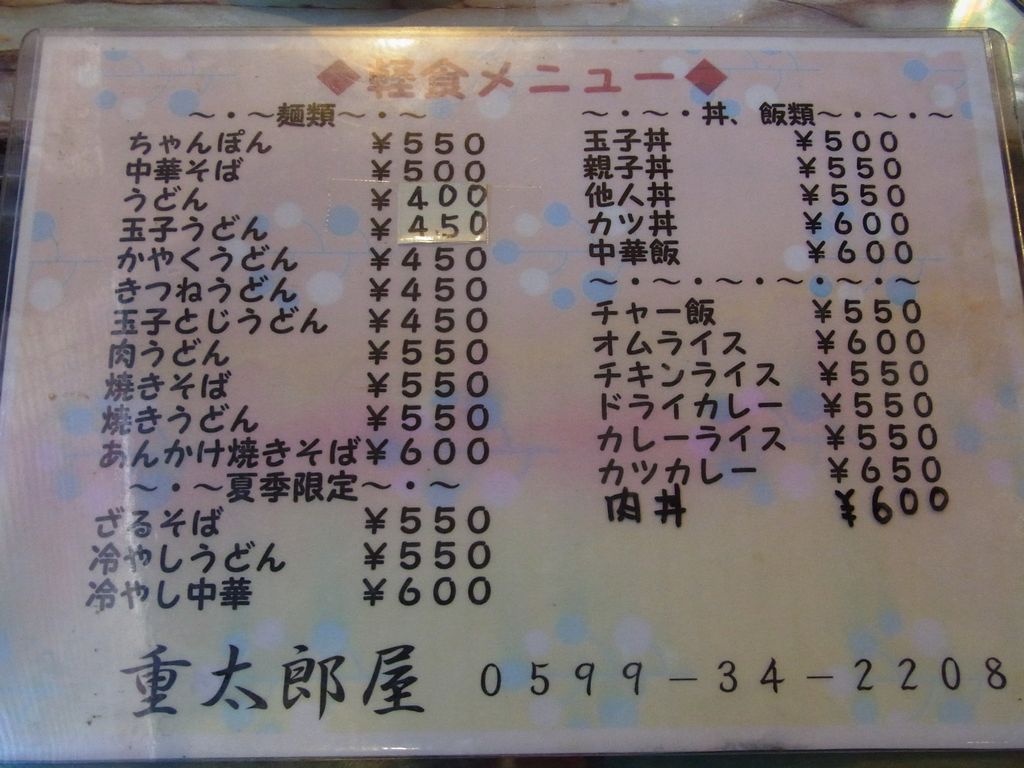 ◆軽食メニュー◆
～・～麺類～・～
ちゃんぽん ￥５５０
中華そば ￥５００
うどん ￥４００
玉子うどん ￥４５０
かやくうどん ￥４５０
きつねうどん ￥４５０
玉子とじうどん ￥４５０
肉うどん ￥５５０
焼きそば ￥５５０
焼きうどん ￥５５０
あんかけ焼きそば￥６００
～・～夏季限定～・～
ざるそば ￥５５０
冷やしうどん ￥５５０
冷やし中華 ￥６００
～・～・丼、飯類～・～・～
玉子丼 ￥５００
親子丼 ￥５５０
他人丼 ￥５５０
カツ丼 ￥６００
中華飯 ￥６００
～・～・～・～・～・～
チャー飯 ￥５５０
オムライス ￥６００
チキンライス ￥５５０
ドライカレー ￥５５０
カレーライス ￥５５０
カツカレー ￥６５０
肉丼 ￥６００
重太郎屋 ０５９９－３４－２２０８